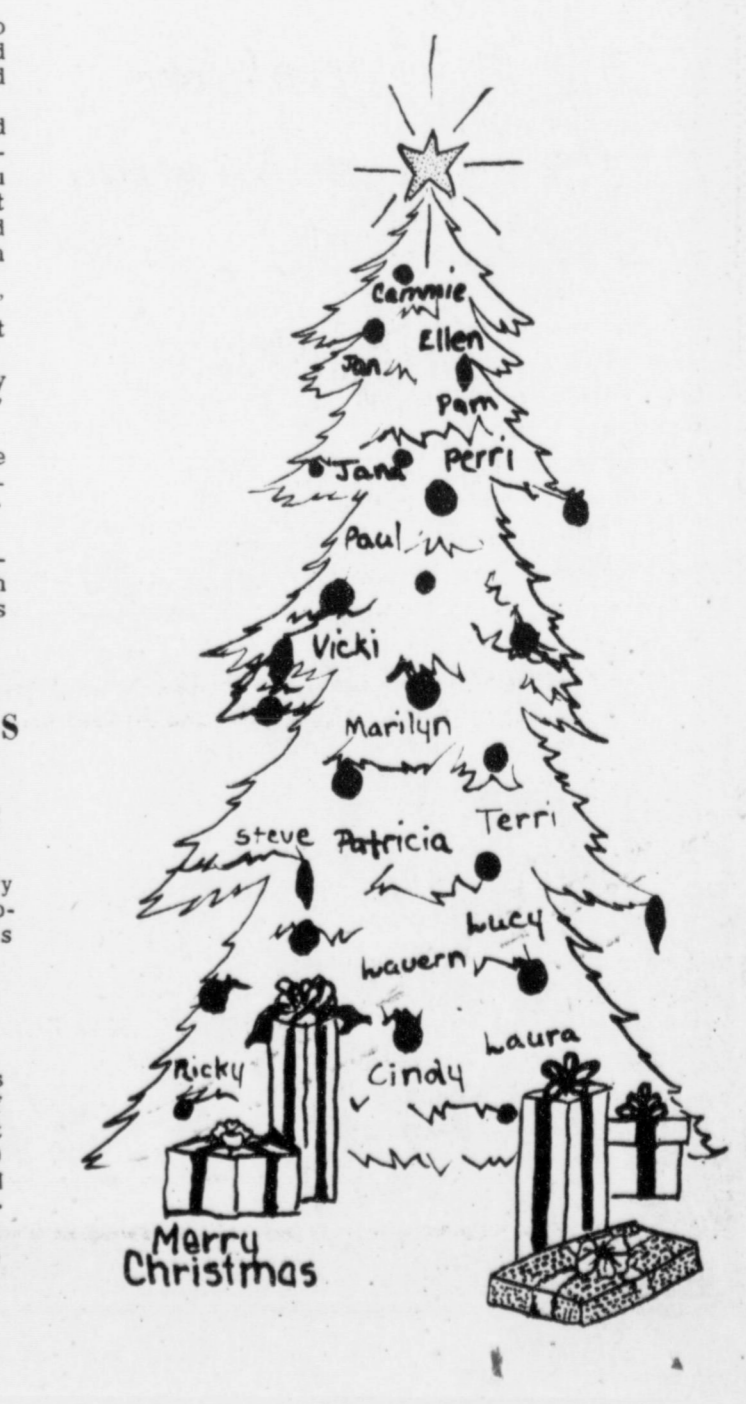 Cammie
Ellen
Jan
Pam
Jana
Perri
Paul
Vicki
Marilyn
Terri
Steve
Patricia
Lucy
Lavern
Laura
Ricky
Cindy
Merry
Christmas
s